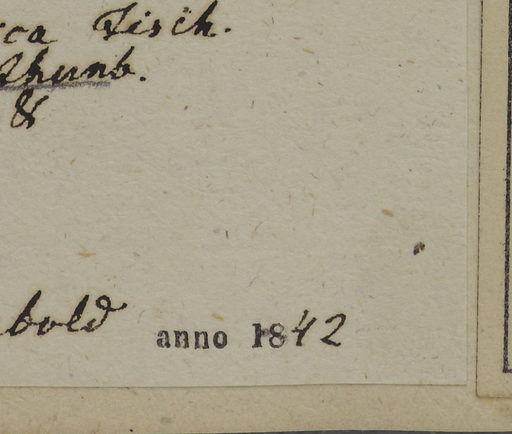 cca Fisch.
Thunb.
&
bold anno 1842